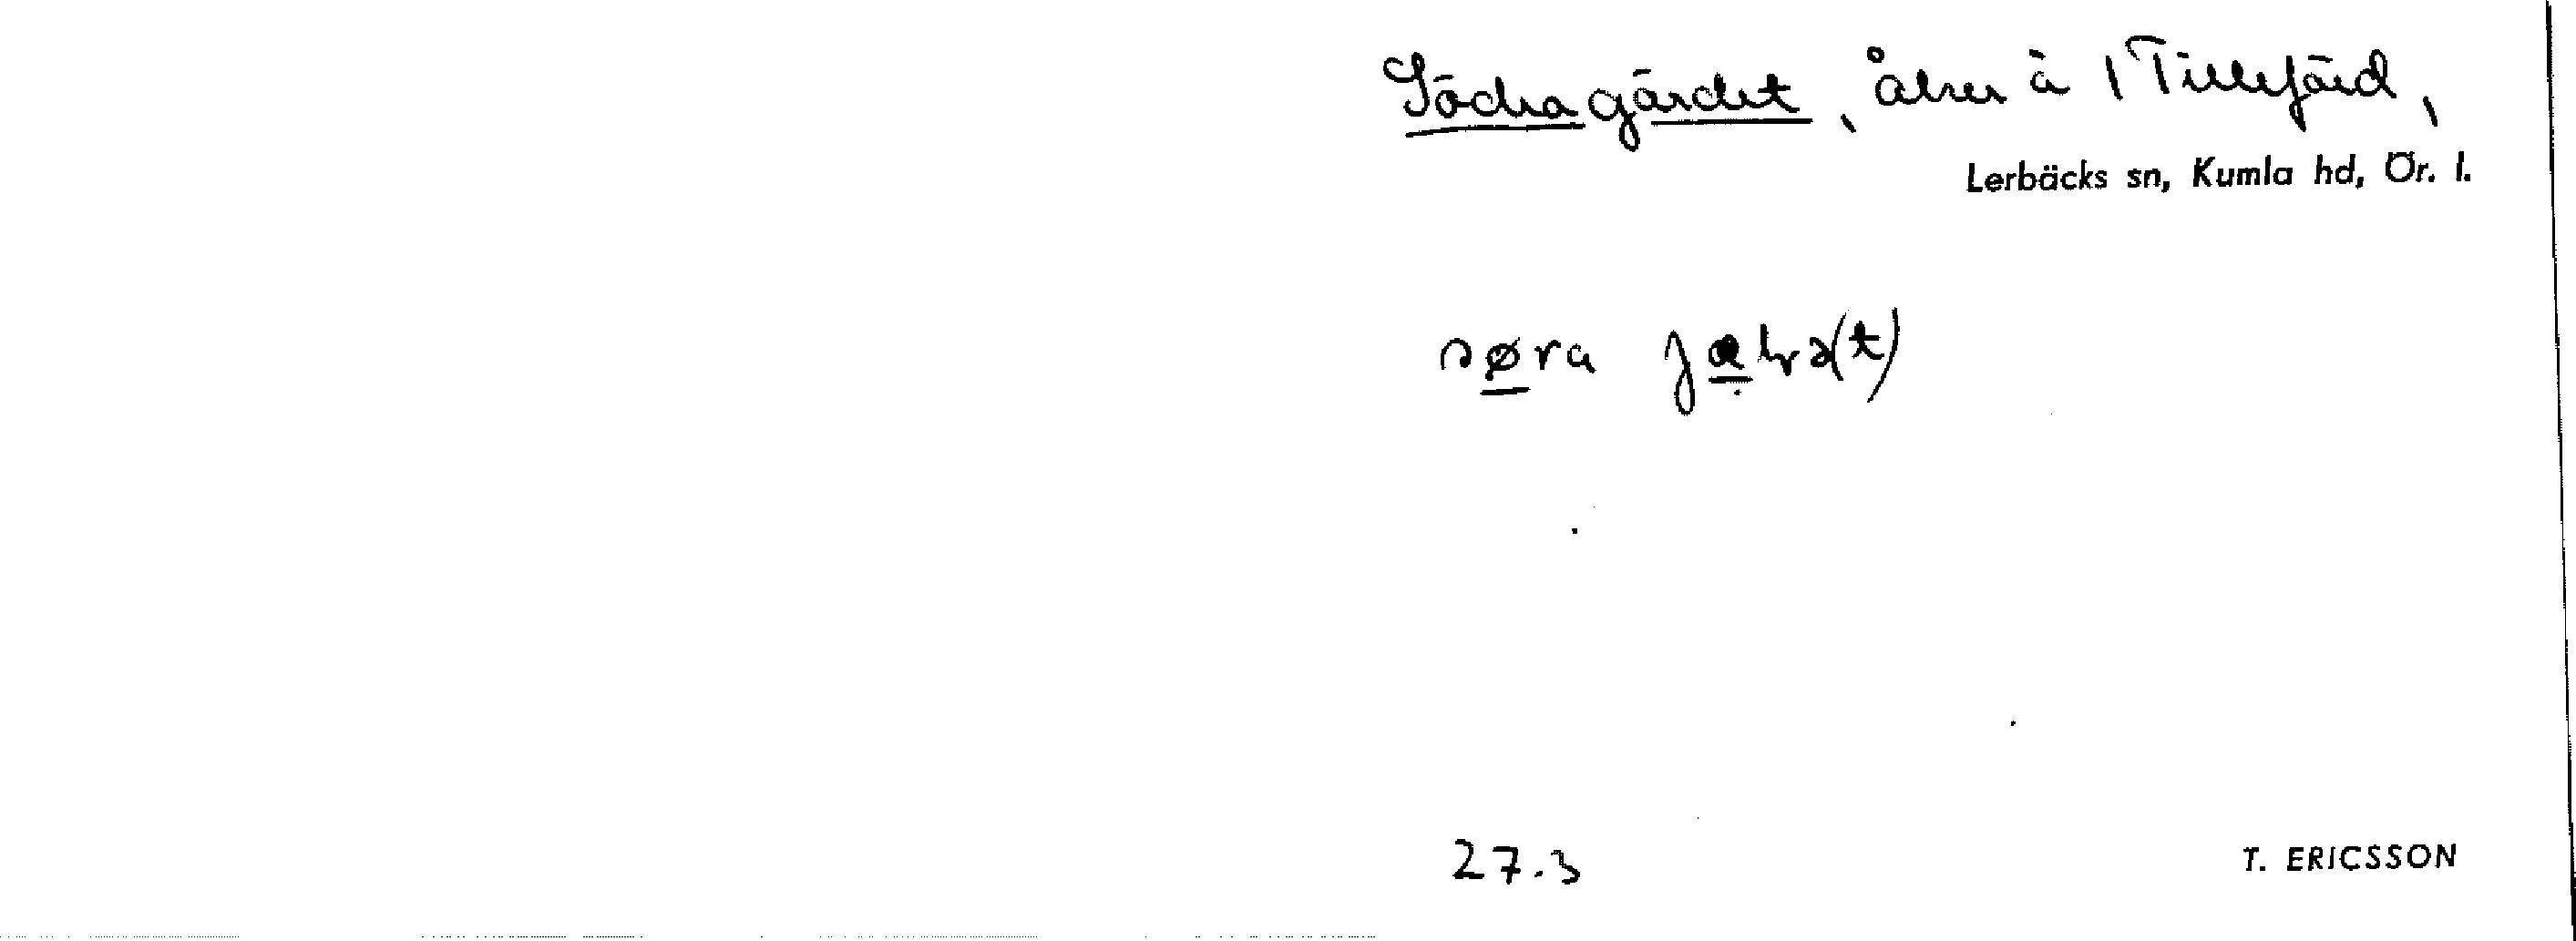 Södra gärdet, åkrar å 1 Tillefärd,
Lerbäcks sn, Kumla hd, Ör. l.
søra
27.3
T. ERICSSON